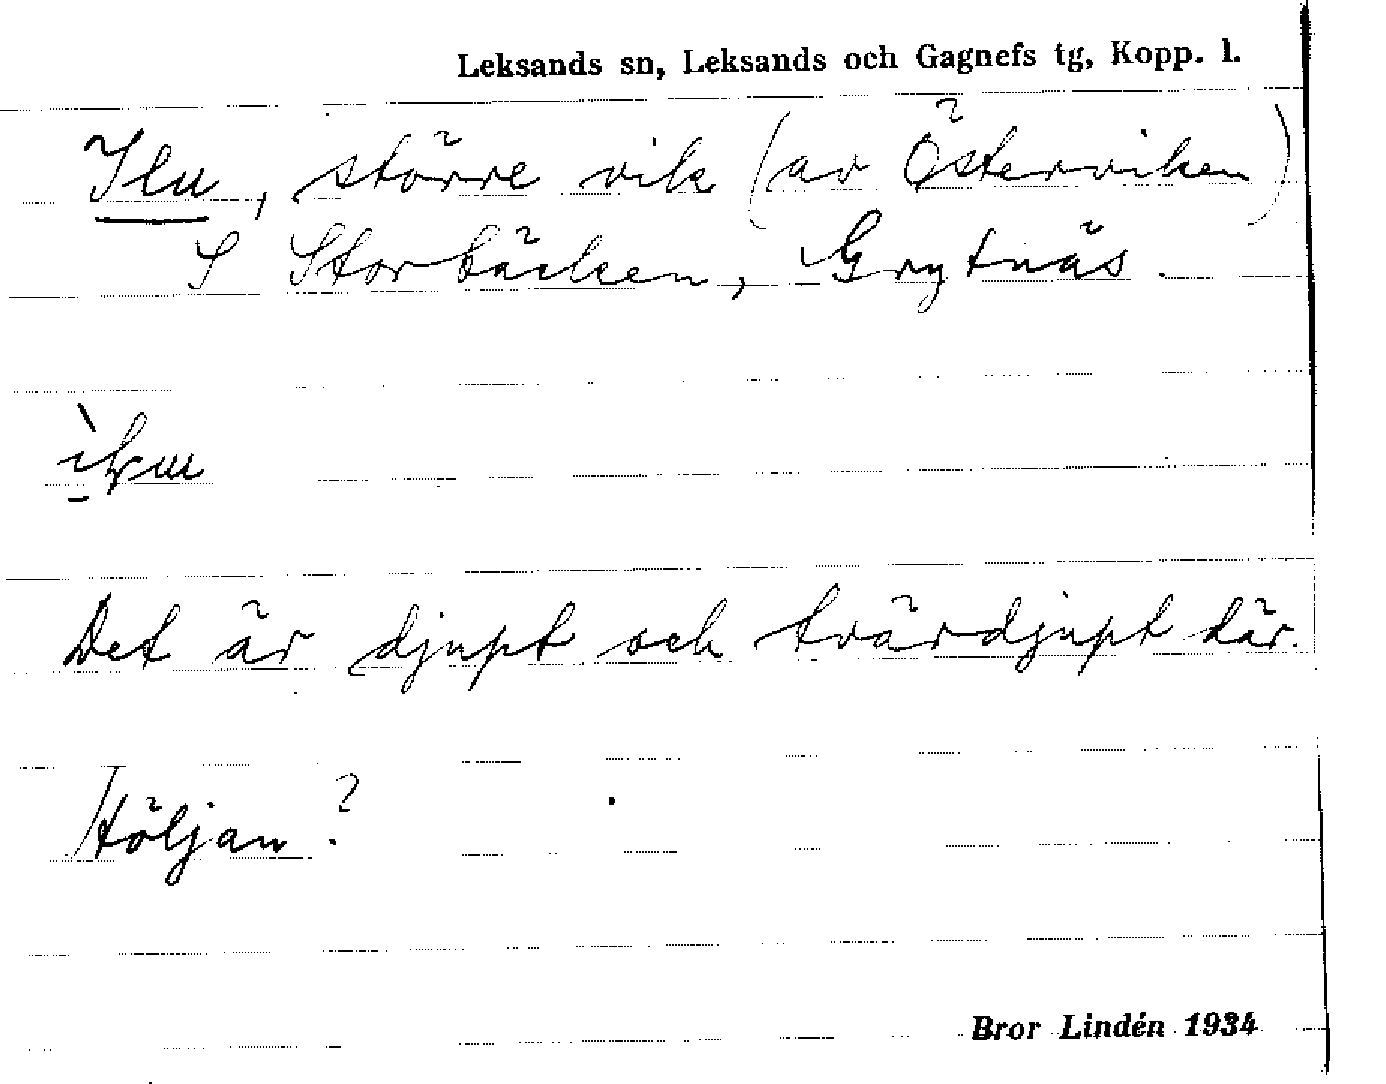 Leksands sn, Leksands och Gagnefs tg, Kopp. l.
Ilu, större vik (av Österviken)
S Storbäcken, Grytnäs.
Det är djupt och tvärdjupt där.
Höljan?
Bror Lindén 1934